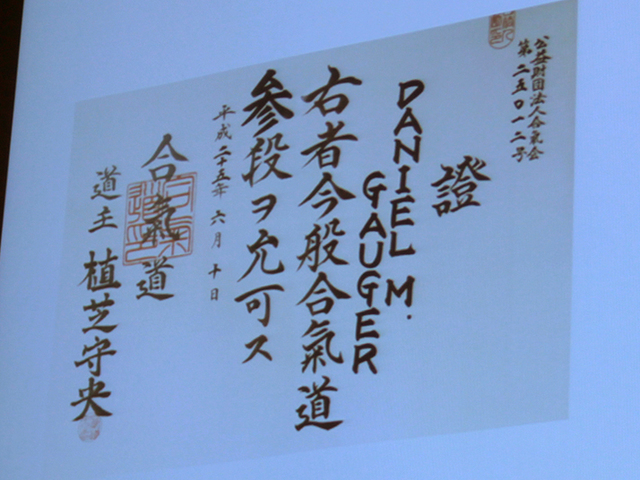 公益財団法人合氣会
第二五〇一二号
證
DANIEL M.
GAUGER
右者今般合氣道
参段ヲ允可ス
平成二十五年六月十日
合氣道
道主 植芝守央